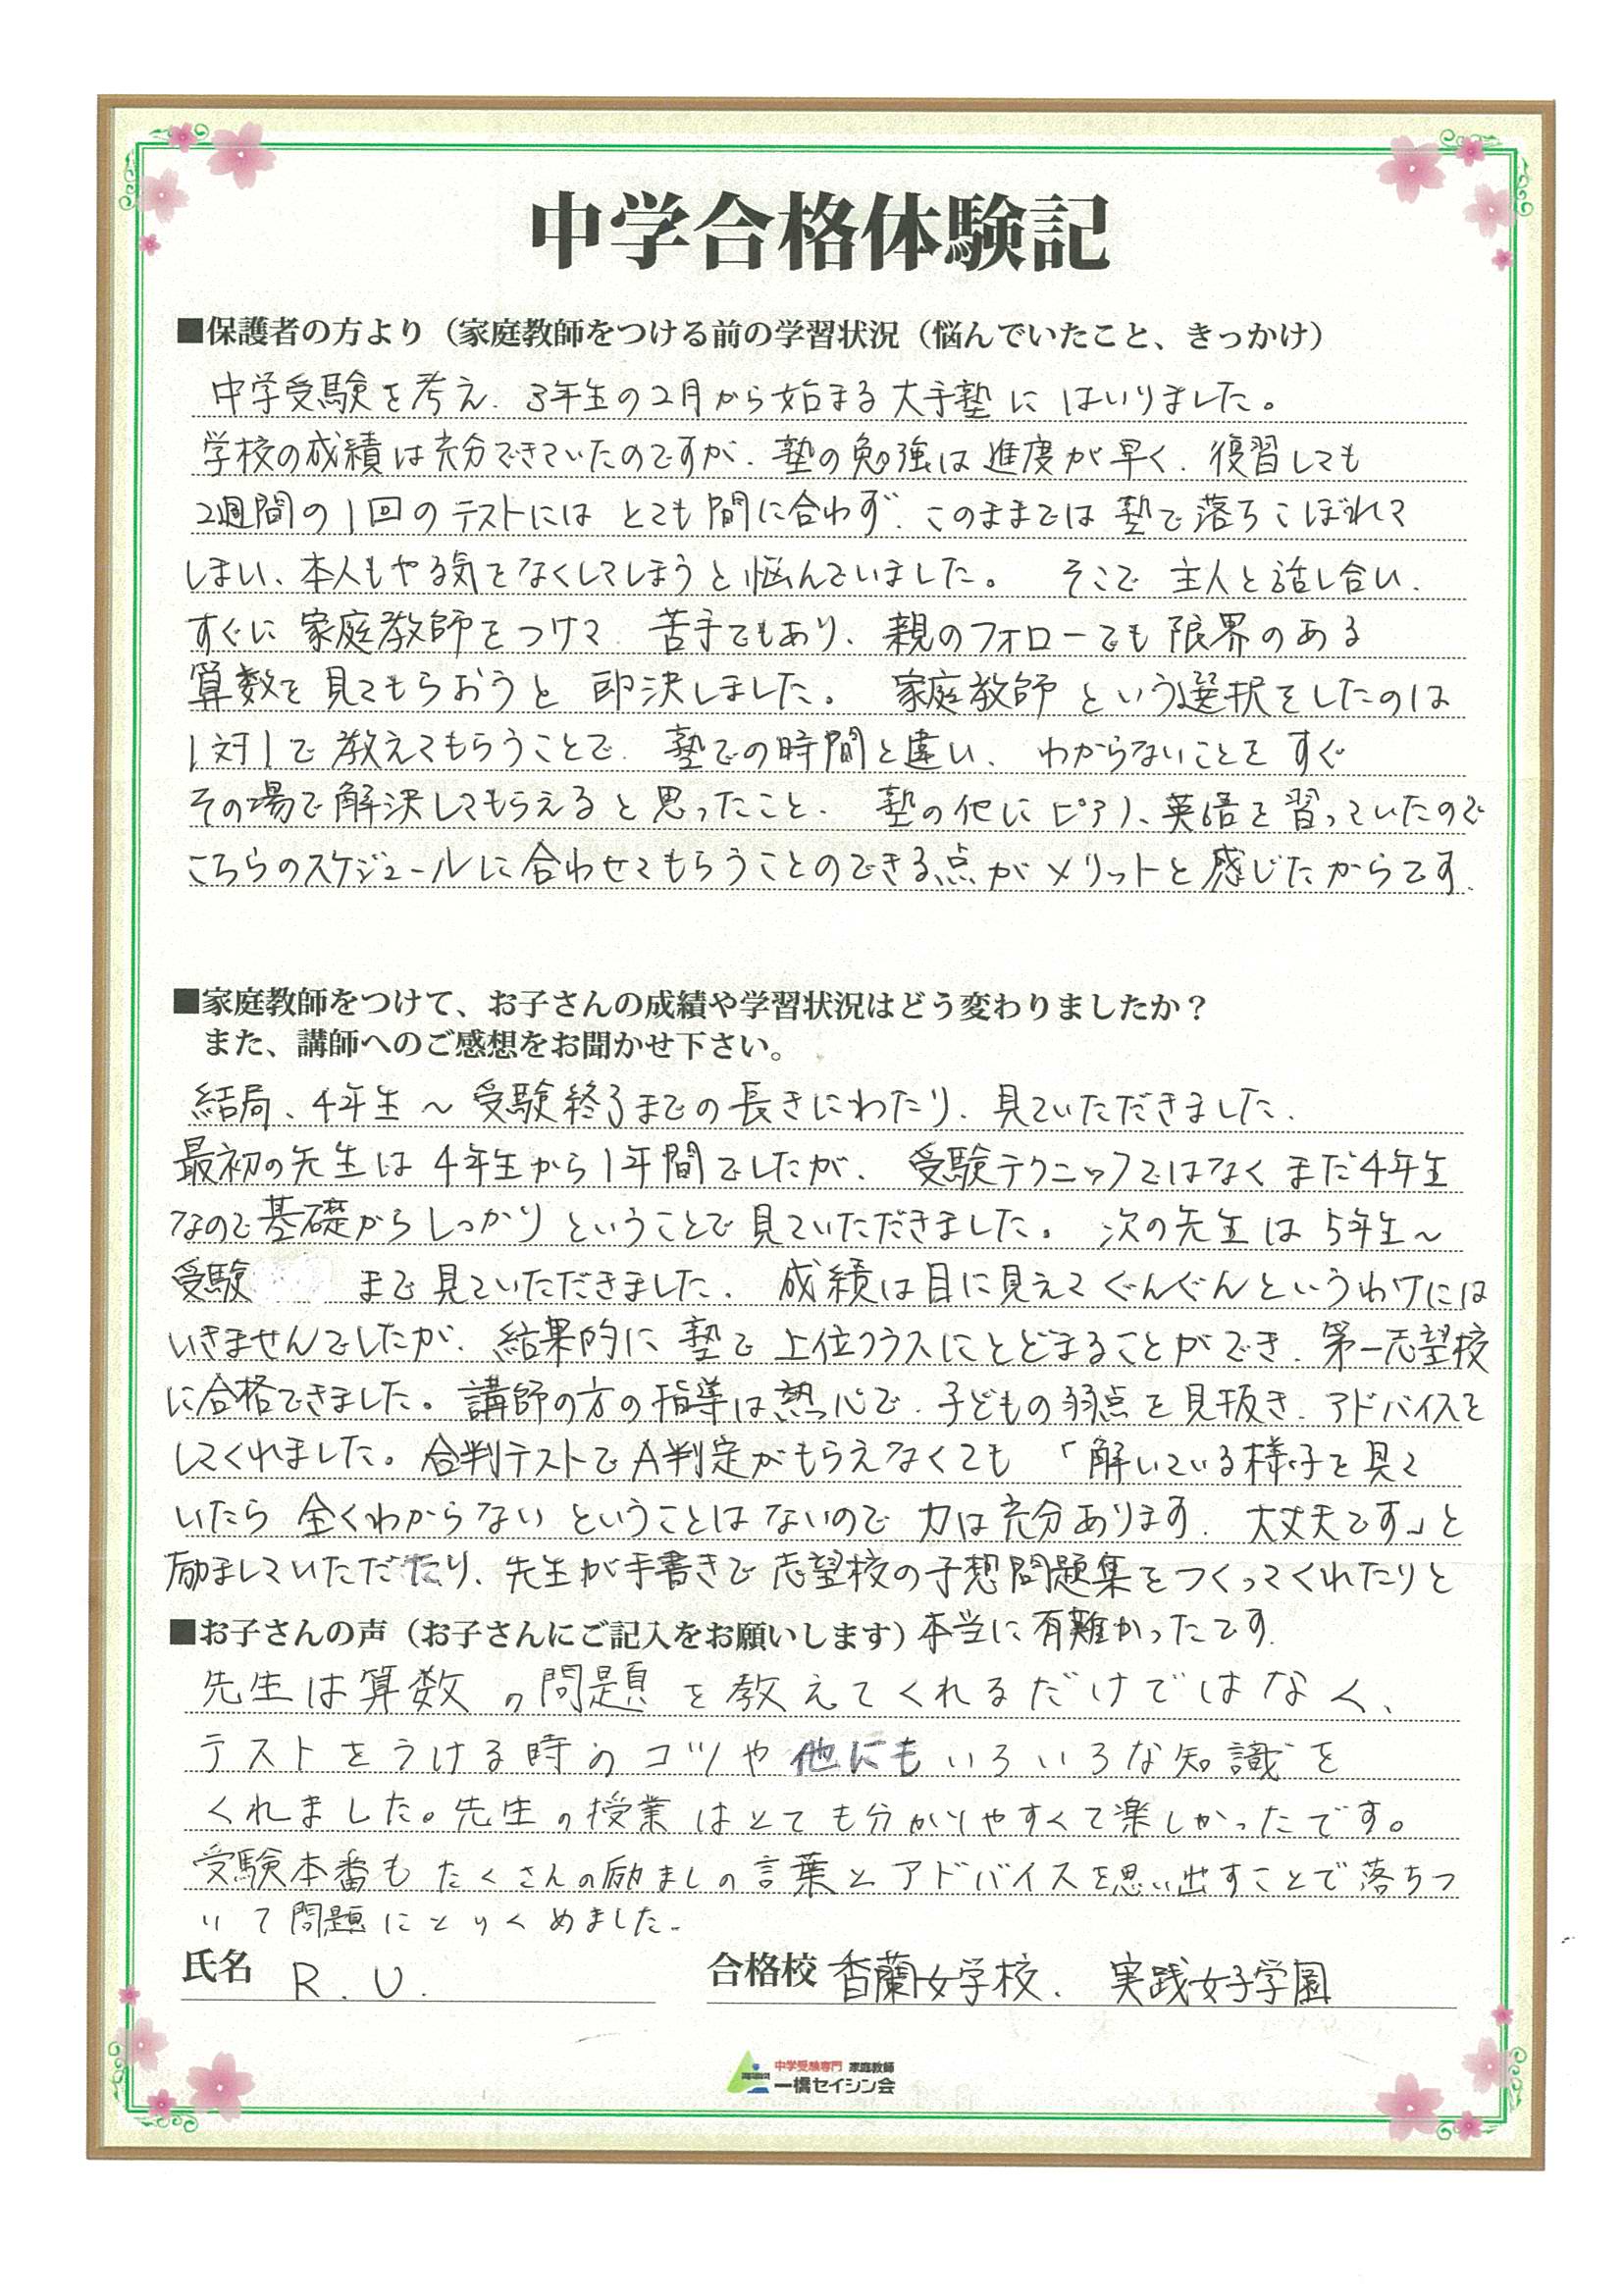 中学合格体験記
■保護者の方より（家庭教師をつける前の学習状況（悩んでいたこと、きっかけ）
中学受験を考え、3年生の2月から始まる大手塾にはいりました。
学校の成績は充分できていたのですが、塾の勉強は進度が早く、復習しても
2週間の1回のテストにはとても間に合わず、このままでは塾で落ちこぼれて
しまい、本人もやる気をなくしてしまうと悩んでいました。 そこで主人と話し合い、
すぐに家庭教師をつけて、苦手でもあり、親のフォローでも限界のある
算数を見てもらおうと即決しました。 家庭教師という選択をしたのは
1対1で教えてもらうことで、塾での時間と違い、わからないことをすぐ
その場で解決してもらえると思ったこと、塾の他にピアノ、英語を習っていたので
こちらのスケジュールに合わせてもらうことのできる点がメリットと感じたからです。
■家庭教師をつけて、お子さんの成績や学習状況はどう変わりましたか？
また、講師へのご感想をお聞かせ下さい。
結局、4年生～受験終了までの長きにわたり、見ていただきました。
最初の先生は4年生から1年間でしたが、受験テクニックではなくまだ4年生
なので基礎からしっかりということで見ていただきました。 次の先生は5年生～
受験 まで見ていただきました。 成績は目に見えてぐんぐんというわけには
いきませんでしたが、結果的に塾で上位クラスにとどまることができ、第一志望校
に合格できました。講師の方の指導は熱心で、子どもの弱点を見抜き、アドバイスを
してくれました。合判テストでA判定がもらえなくても「解いている様子を見て
いたら全くわからないということはないので力は充分あります。大丈夫です」と
励ましていただたり、先生が手書きで志望校の予想問題集をつくってくれたりと
本当に有難かったです。
■お子さんの声（お子さんにご記入をお願いします）
先生は算数の問題を教えてくれるだけではなく、
テストをうける時のコツや他にもいろいろな知識を
くれました。先生の授業はとても分かりやすくて楽しかったです。
受験本番もたくさんの励ましの言葉とアドバイスを思い出すことで落ちつ
いて問題にとりくめました。
氏名 R.U. 合格校 香蘭女学校、 実践女子学園
中学受験専門 家庭教師
一橋セイシン会